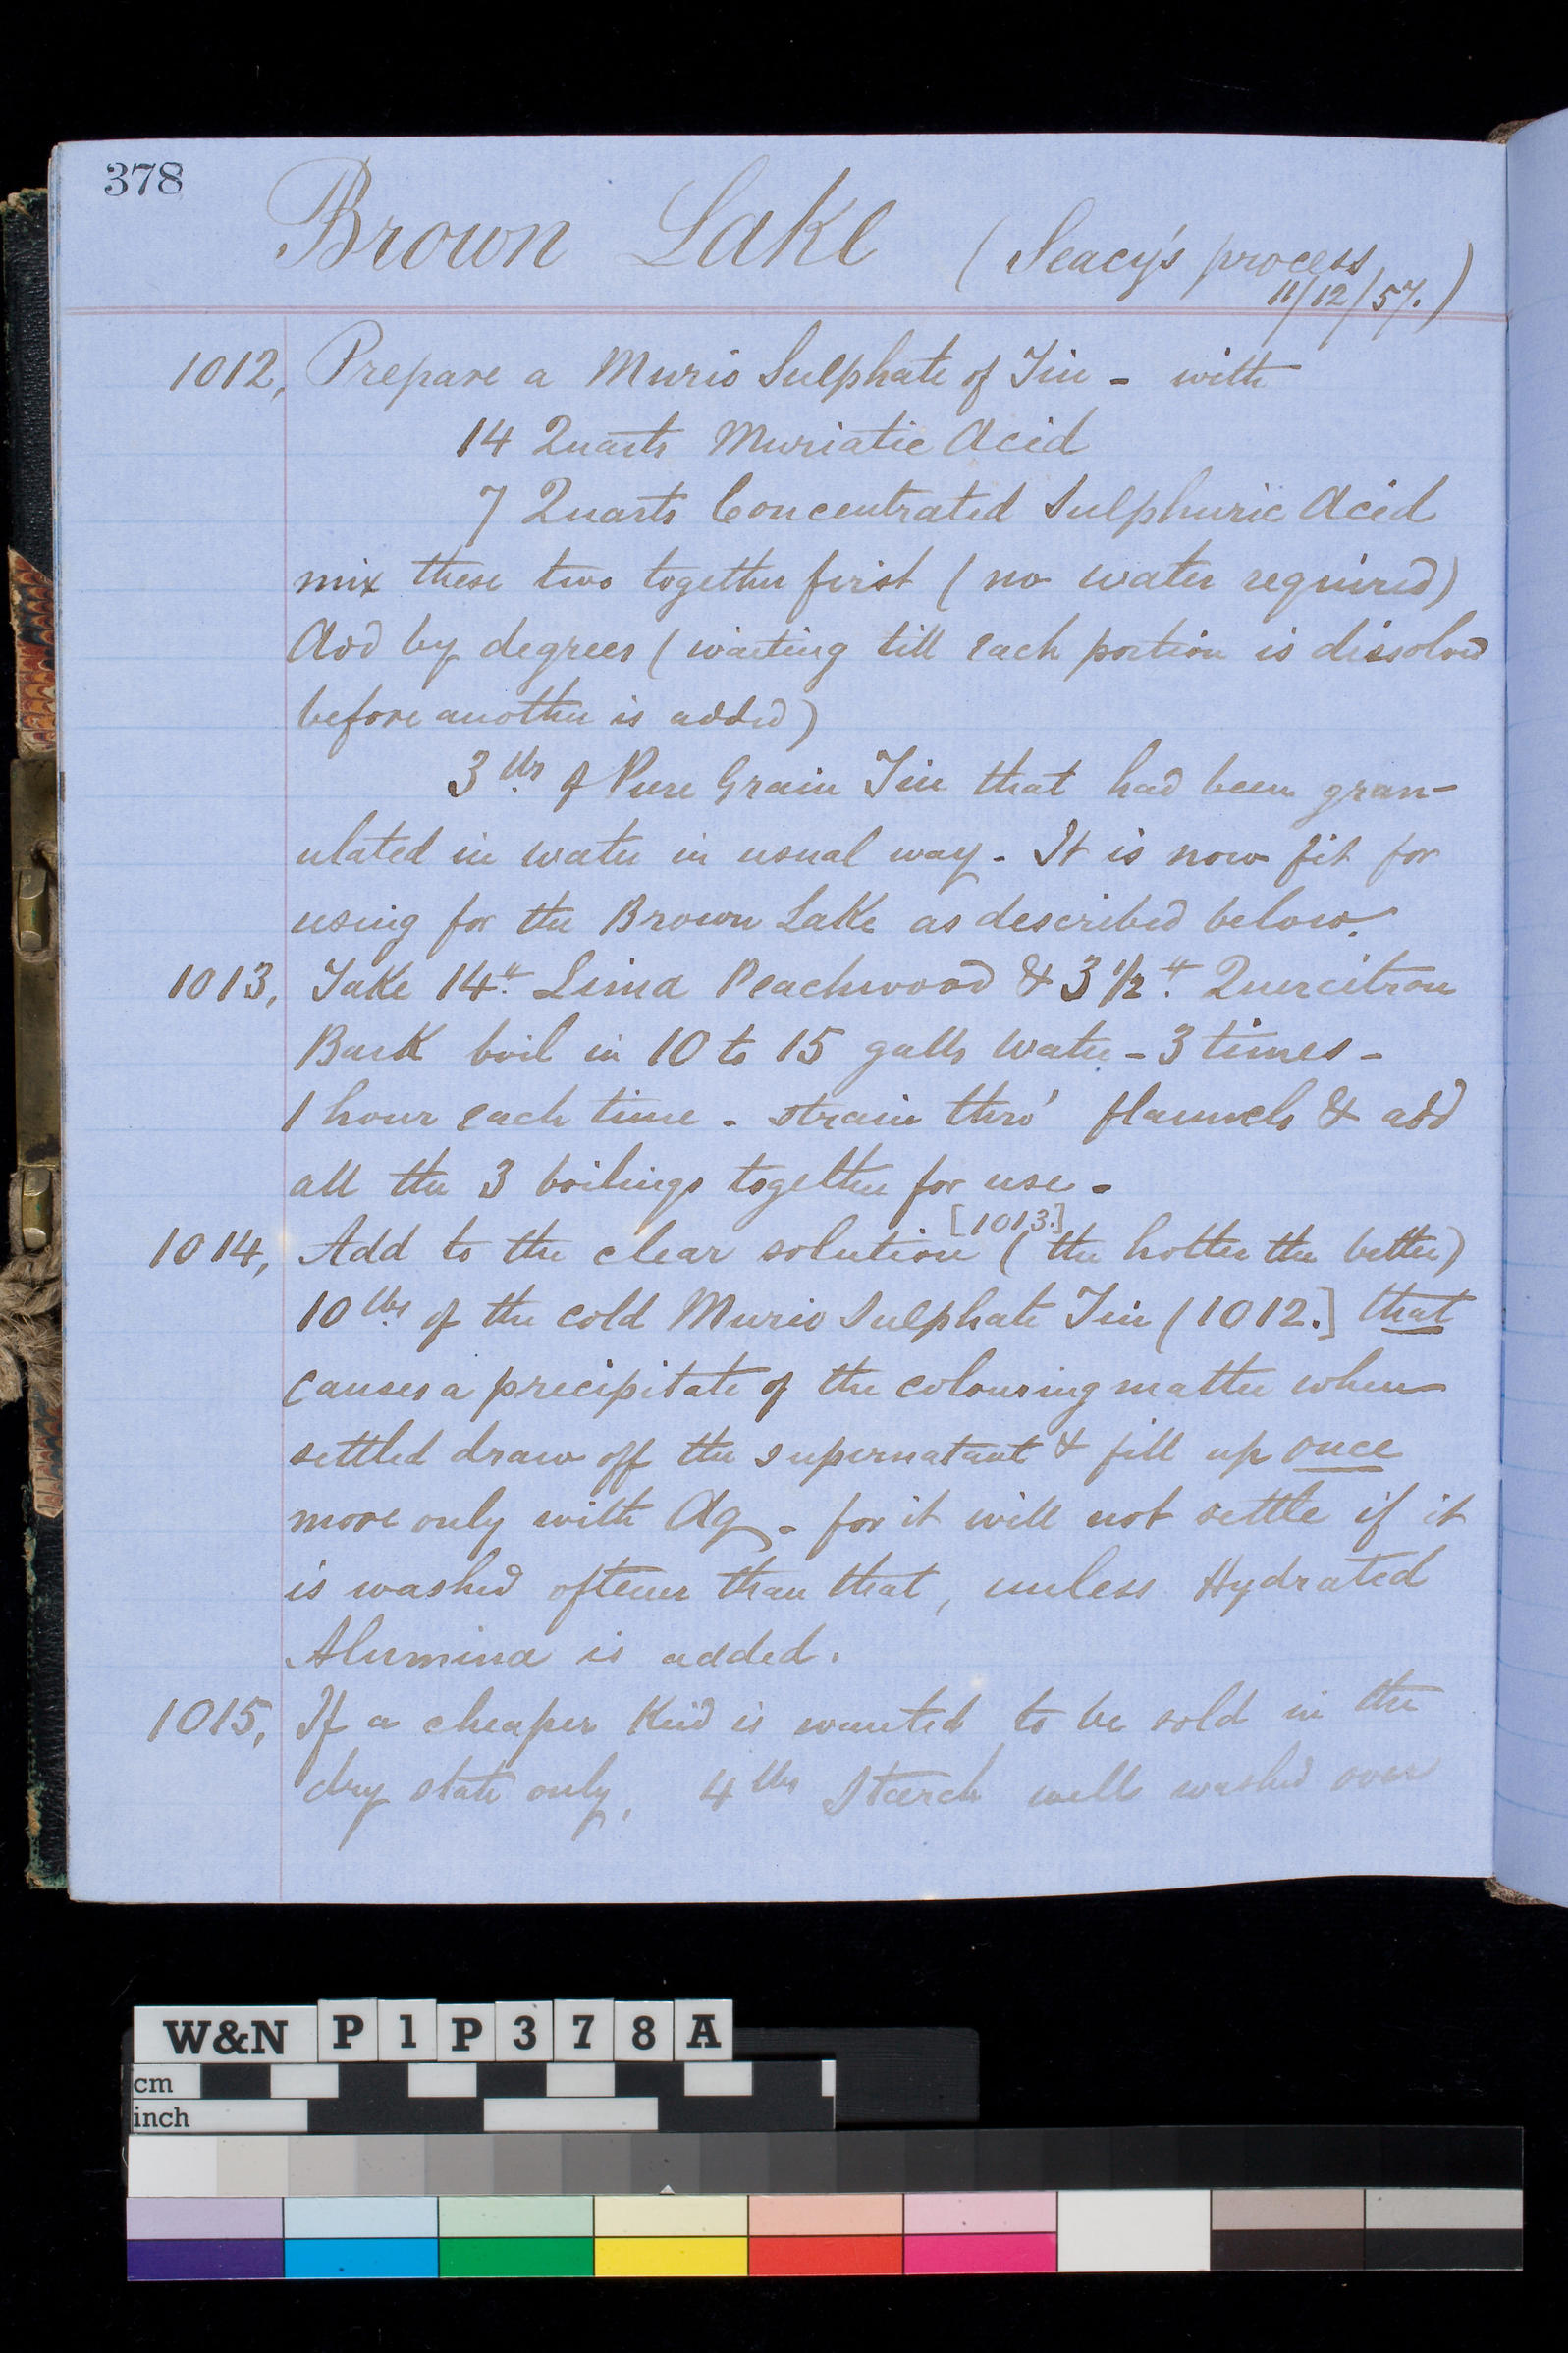 378
Brown Lake (Seacy's process
11/12/57.)
1012, Prepare a Murio Sulphate of Tin - with
14 Quarts Muriatic Acid
7 Quarts Concentrated Sulphuric Acid
mix these two together first (no water required)
Add by degrees (waiting till each portion is dissolved
before another is added)
3 lbs of Pure Grain Tin that had been gran-
ulated in water in usual way - It is now fit for
using for the Brown Lake as described below.
1013, Take 14 " Lima Peachwood & 3 1/2 " Quercitron
Bark boil in 10 to 15 galls water - 3 times -
1 hour each time - strain thro' flannels & add
all the 3 boilings together for use -
[1013.]
1014, Add to the clear solution (the hotter the better)
10 lbs of the cold Murio Sulphate Tin (1012.] that
causes a precipitate of the colouring matter when
settled draw off the supernatant & fill up once
more only with Aq - for it will not settle if it
is washed oftener than that, unless Hydrated
Alumina is added.
1015, If a cheaper Kind is wanted to be sold in the
dry state only, 4 lbs Starch well washed over
W&N P1P378A
cm
inch